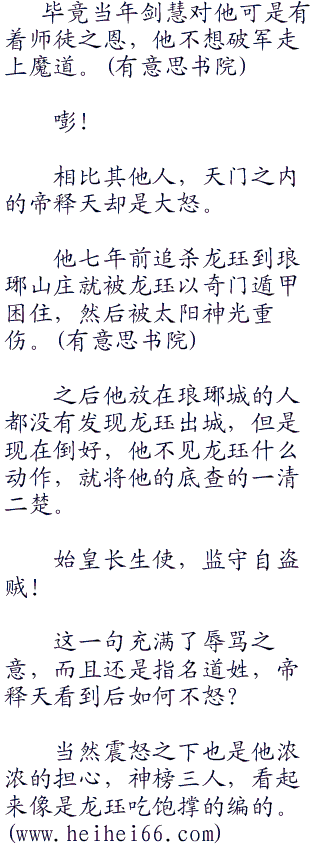 毕竟当年剑慧对他可是有
着师徒之恩，他不想破军走
上魔道。(有意思书院)
嘭！
相比其他人，天门之内
的帝释天却是大怒。
他七年前追杀龙珏到琅
琊山庄就被龙珏以奇门遁甲
困住，然后被太阳神光重
伤。(有意思书院)
之后他放在琅琊城的人
都没有发现龙珏出城，但是
现在倒好，他不见龙珏什么
动作，就将他的底查的一清
二楚。
始皇长生使，监守自盗
贼！
这一句充满了辱骂之
意，而且还是指名道姓，帝
释天看到后如何不怒？
当然震怒之下也是他浓
浓的担心，神榜三人，看起
来像是龙珏吃饱撑的编的。
(www.heihei66.com)